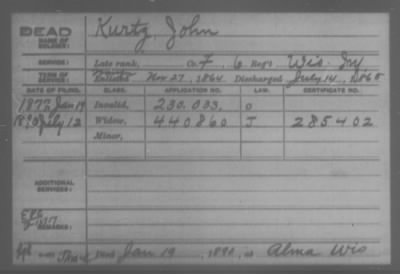 DEAD
NAME OF SOLDIER: Kurtz, John
SERVICE: Late rank, Co. F, 6 Reg't Wis. Inf
TERM OF SERVICE: Enlisted Nov 27, 1864, Discharged July 14, 1865
DATE OF FILING. CLASS. APPLICATION NO. LAW. CERTIFICATE NO.
1877 Jan 19 Invalid, 230.033, O
1890 July 12 Widow, 440860 J 285402
Minor,
ADDITIONAL SERVICES:
REMARKS:
Died Jan 19, 1890, at Alma Wis